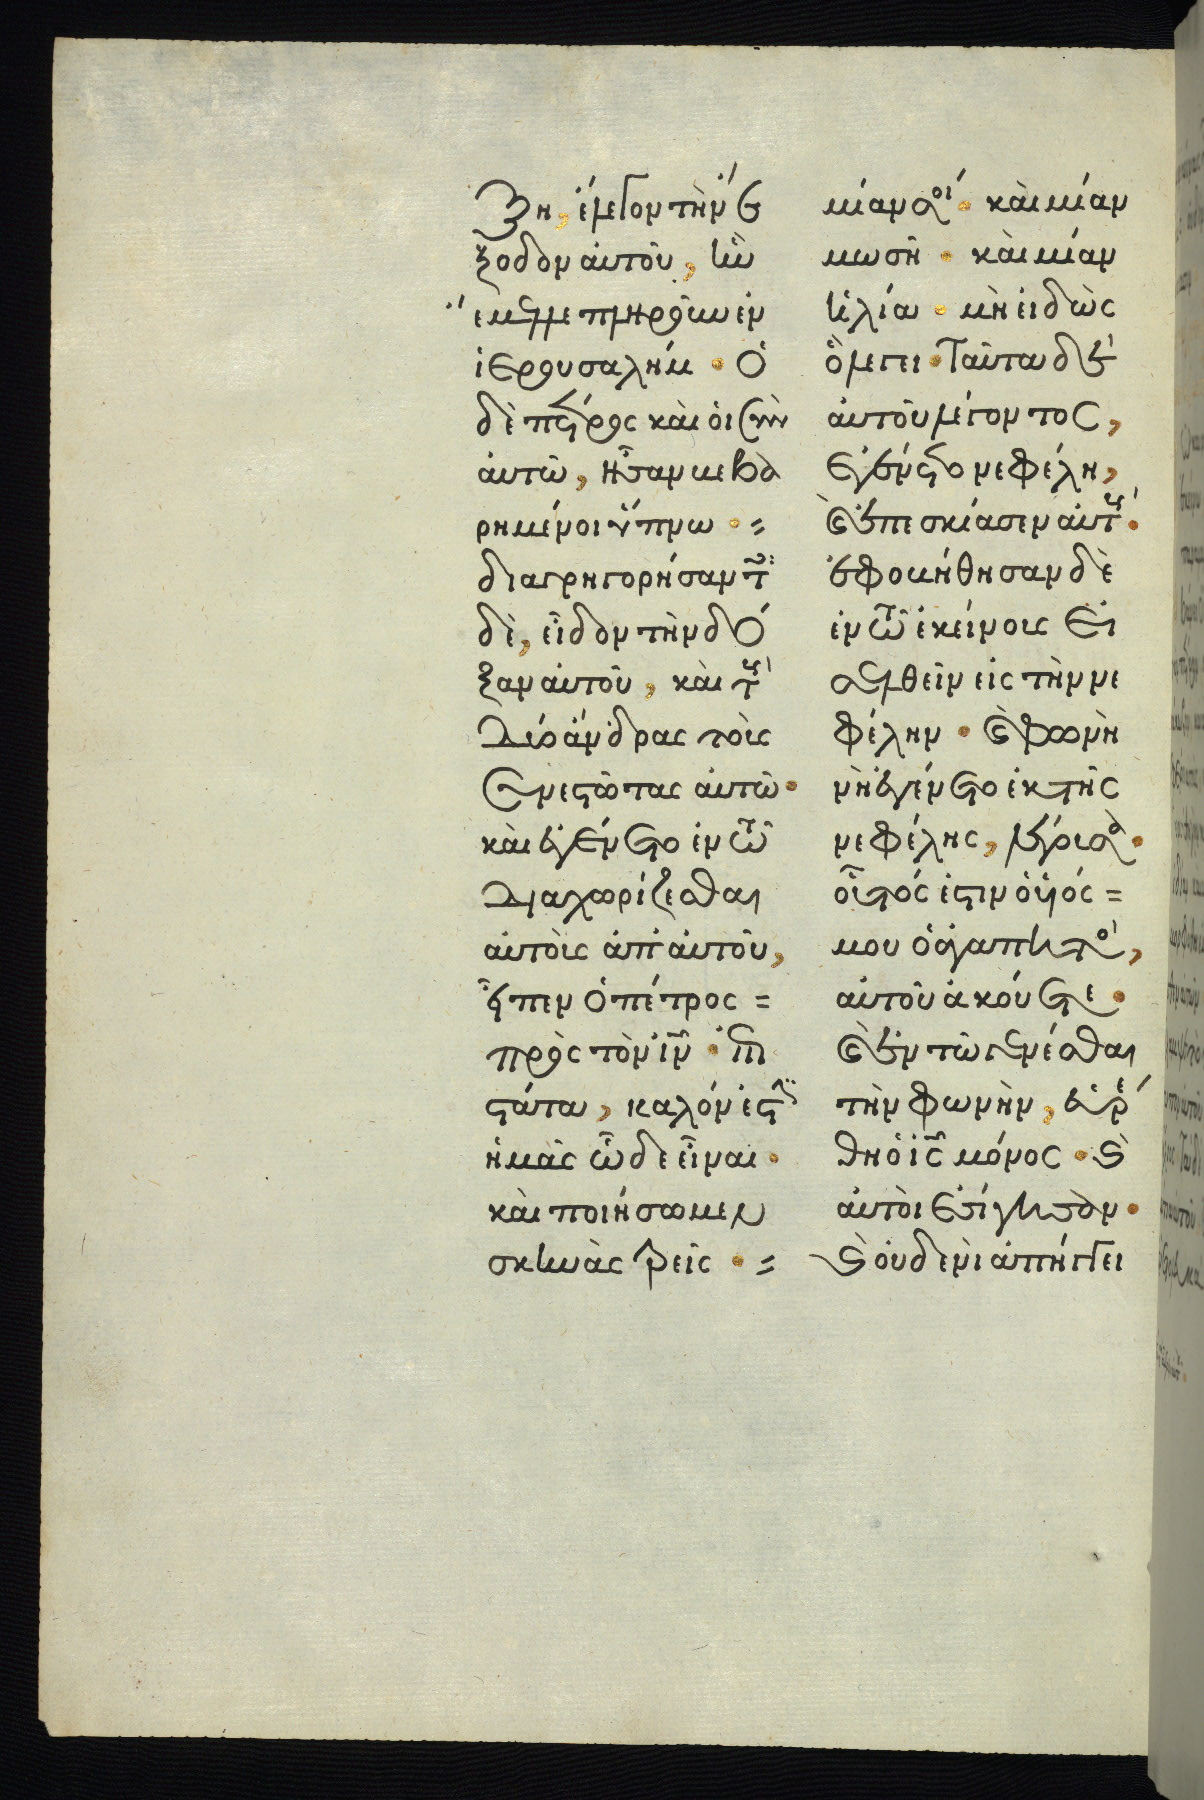 ξῃ, ἔλεγον τὴν ἔ
ξοδον αὐτοῦ, ἣν
ἔμελλε πληροῦν ἐν
ἱερουσαλήμ. ὁ
δὲ πέτρος καὶ οἱ σὺν
αὐτῷ, ἦσαν βεβα
ρημένοι ὕπνω. =
διαγρηγορήσαντες
δὲ, εἶδον τὴν δό
ξαν αὐτοῦ, καὶ τοὺς
δύο ἄνδρας τοὺς
συνεστῶτας αὐτῷ.
καὶ ἐγένετο ἐν τῷ
διαχωρίζεσθαι
αὐτοὺς ἀπ' αὐτοῦ,
εἶπεν ὁ πέτρος =
πρὸς τὸν ἰν. ἐπι
στάτα, καλόν ἐστιν
ἡμᾶς ὧδε εἶναι.
καὶ ποιήσωμεν
σκηνὰς τρεῖς. =
μίαν σοί. καὶ μίαν
μωσῆ. καὶ μίαν
ἠλία. μὴ εἰδὼς
ὃ λέγει. Ταῦτα δὲ
αὐτοῦ λέγοντος,
ἐγένετο νεφέλη,
καὶ ἐπεσκίασεν αὐτούς.
ἐφοβήθησαν δὲ
ἐν τῷ ἐκείνους εἰ
σελθεῖν εἰς τὴν νε
φέλην. καὶ φωνὴ
νὴ ἐγένετο ἐκ τῆς
νεφέλης, λέγουσα.
οὗτός ἐστιν ὁ υἱός =
μου ὁ ἀγαπητός,
αὐτοῦ ἀκούετε.
καὶ ἐν τῷ γενέσθαι
τὴν φωνὴν, εὑρέ
θη ὁ ἰς μόνος. καὶ
αὐτοὶ ἐσίγησαν.
καὶ οὐδενὶ ἀπήγγει